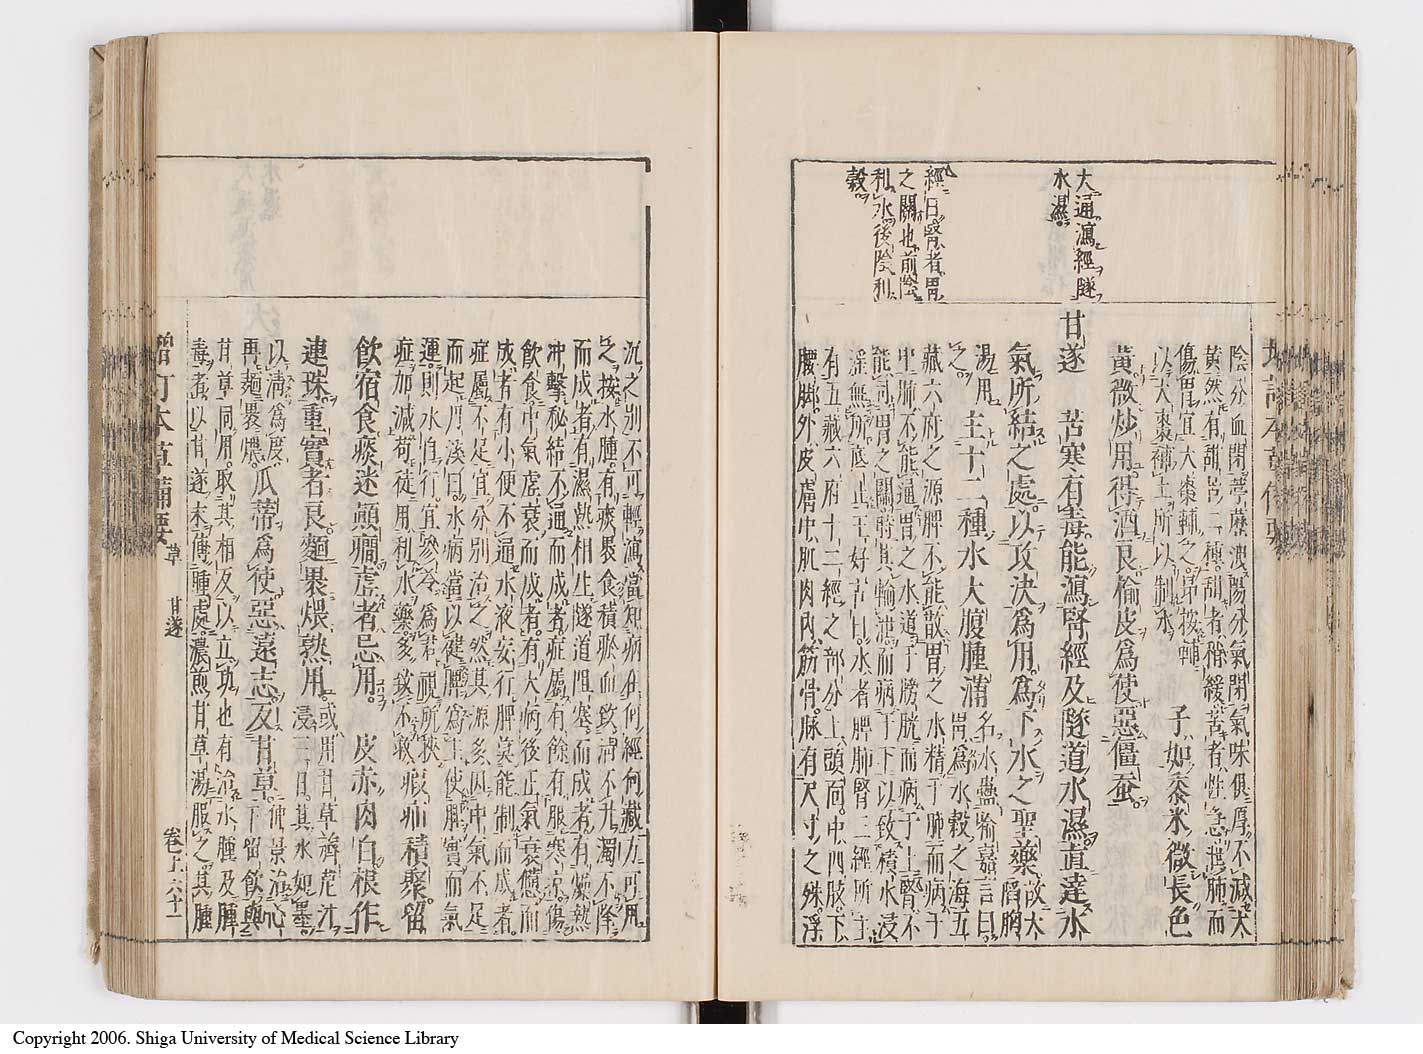 大通瀉經隧
水濕
經曰腎者胃
之關也前陰
利水後陰利
穀
陰分血閉葶藶瀉陽分氣閉氣味俱厚不減大
黃然有甜苦二種甜者稍緩苦者性急泄肺而
傷胃宜大棗輔之昂按輔
以大棗補土所以制水
子如黍米微長色
黃微炒用得酒良榆皮爲使惡僵蚕
甘遂
苦寒有毒能瀉腎經及隧道水濕直達水
氣所結之處以攻決爲用爲下水之聖藥
故大䧟胸
湯用之
主十二種水大腹腫滿
名水蠱喻嘉言曰
胃爲水穀之海五
藏六府之源脾不能散胃之水精于肺而病于
中肺不能通胃之水道于膀胱而病于上腎不
能司胃之關時其輸泄而病于下以致積水浸
淫無所底止王好古曰水者脾肺腎二經所主
有五藏六府十二經之部分上頭面中四肢下
腰脚外皮膚中肌肉內筋骨脉有尺寸之殊浮
沉之別不可輕瀉當知病在何經何藏方可用
之按水腫有痰畏食積瘀血致淸不升濁不降
而成者有濕熱相生隧道阻塞而成者有燥熱
冲擊秘結不通而成者症屬有餘有服寒涼傷
飲食中氣虛衰而成者有大病後正氣衰憊而
成者有小便不通水液妄行脾莫能制而成者
症屬不足宜分別治之然其源多因中氣不足
而起丹溪曰水病當以健脾爲主使脾實而氣
運則水自行宜參苓爲君視所挾
症加減苟徒用利水藥多致不救
瘕疝積聚留
飲宿食痰迷顚癇虛者忌用
皮赤肉白根作
連珠重實者良麵裹煨熟用
或用甘草薺苨汁
浸三日其水如墨
以淸爲度
再麵裹煨
瓜蒂爲使惡遠志反甘草
仲景治心
下留飲與
甘草同用取其相反以立功也有治水腫及腫
毒者以甘遂末傅腫處濃煎甘草湯服之其腫
增訂本草備要
草
甘遂
卷上
六十一